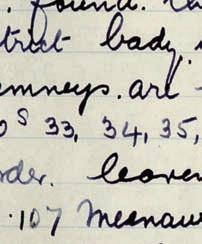 . found.
strict bady.
emneys. are
oS 33, 34, 35,
der. leave
.107 Mesnaw